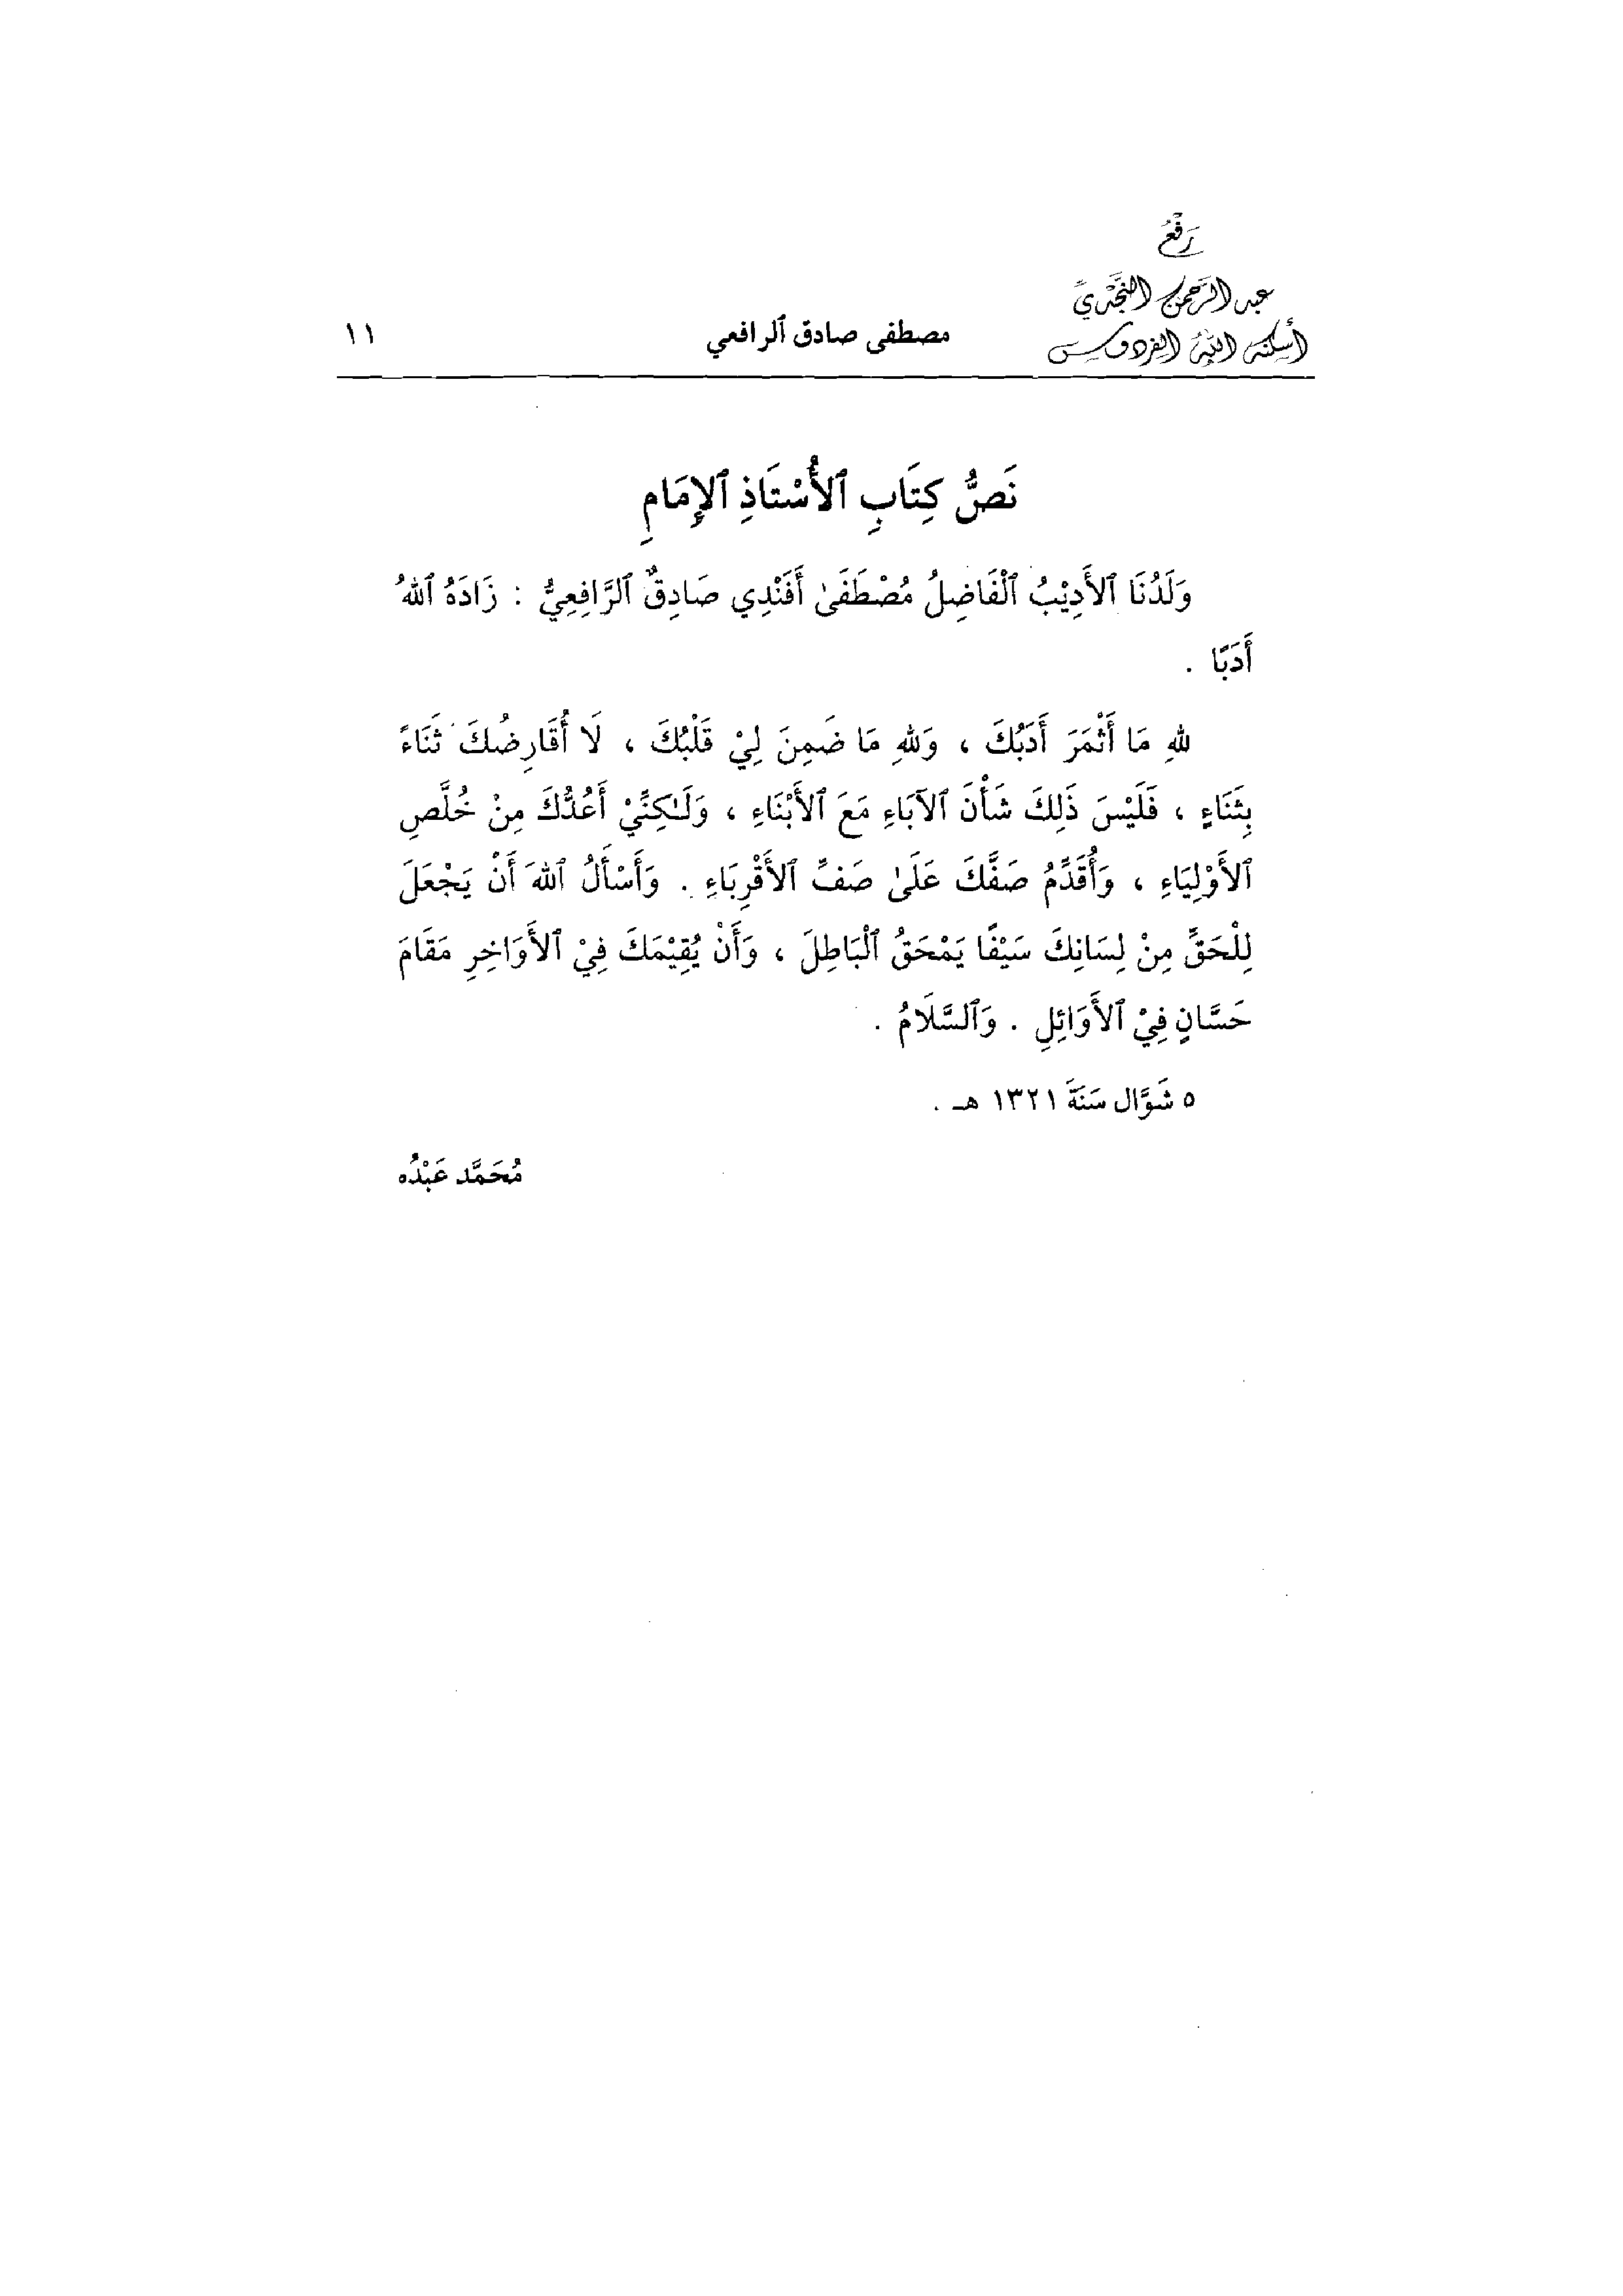 رَفْعُ
عبد الرَّحمن النَّجْديّ
أسكنه اللهُ الفردوس
مصطفى صادق ٱلرافعي ١١
نَصُّ كِتَابِ ٱلأُسْتَاذِ ٱلإِمَامِ
وَلَدُنَا ٱلأَدِيْبُ ٱلْفَاضِلُ مُصْطَفَىٰ أَفَنْدِي صَادِقٌ ٱلرَّافِعِيُّ : زَادَهُ ٱللهُ
أَدَبًا .
للهِ مَا أَثْمَرَ أَدَبُكَ ، وَللهِ مَا ضَمِنَ لِيْ قَلْبُكَ ، لَا أُقَارِضُكَ ثَنَاءً
بِثَنَاءٍ ، فَلَيْسَ ذَلِكَ شَأْنَ ٱلآبَاءِ مَعَ ٱلأَبْنَاءِ ، وَلَـٰكِنِّيْ أَعُدُّكَ مِنْ خُلَّصِ
ٱلأَوْلِيَاءِ ، وَأُقَدِّمُ صَفَّكَ عَلَىٰ صَفِّ ٱلأَقْرِبَاءِ . وَأَسْأَلُ ٱللهَ أَنْ يَجْعَلَ
لِلْحَقِّ مِنْ لِسَانِكَ سَيْفًا يَمْحَقُ ٱلْبَاطِلَ ، وَأَنْ يُقِيْمَكَ فِيْ ٱلأَوَاخِرِ مَقَامَ
حَسَّانٍ فِيْ ٱلأَوَائِلِ . وَٱلسَّلَامُ .
٥ شَوَّال سَنَةَ ١٣٢١ هـ .
مُحَمَّد عَبْدُه